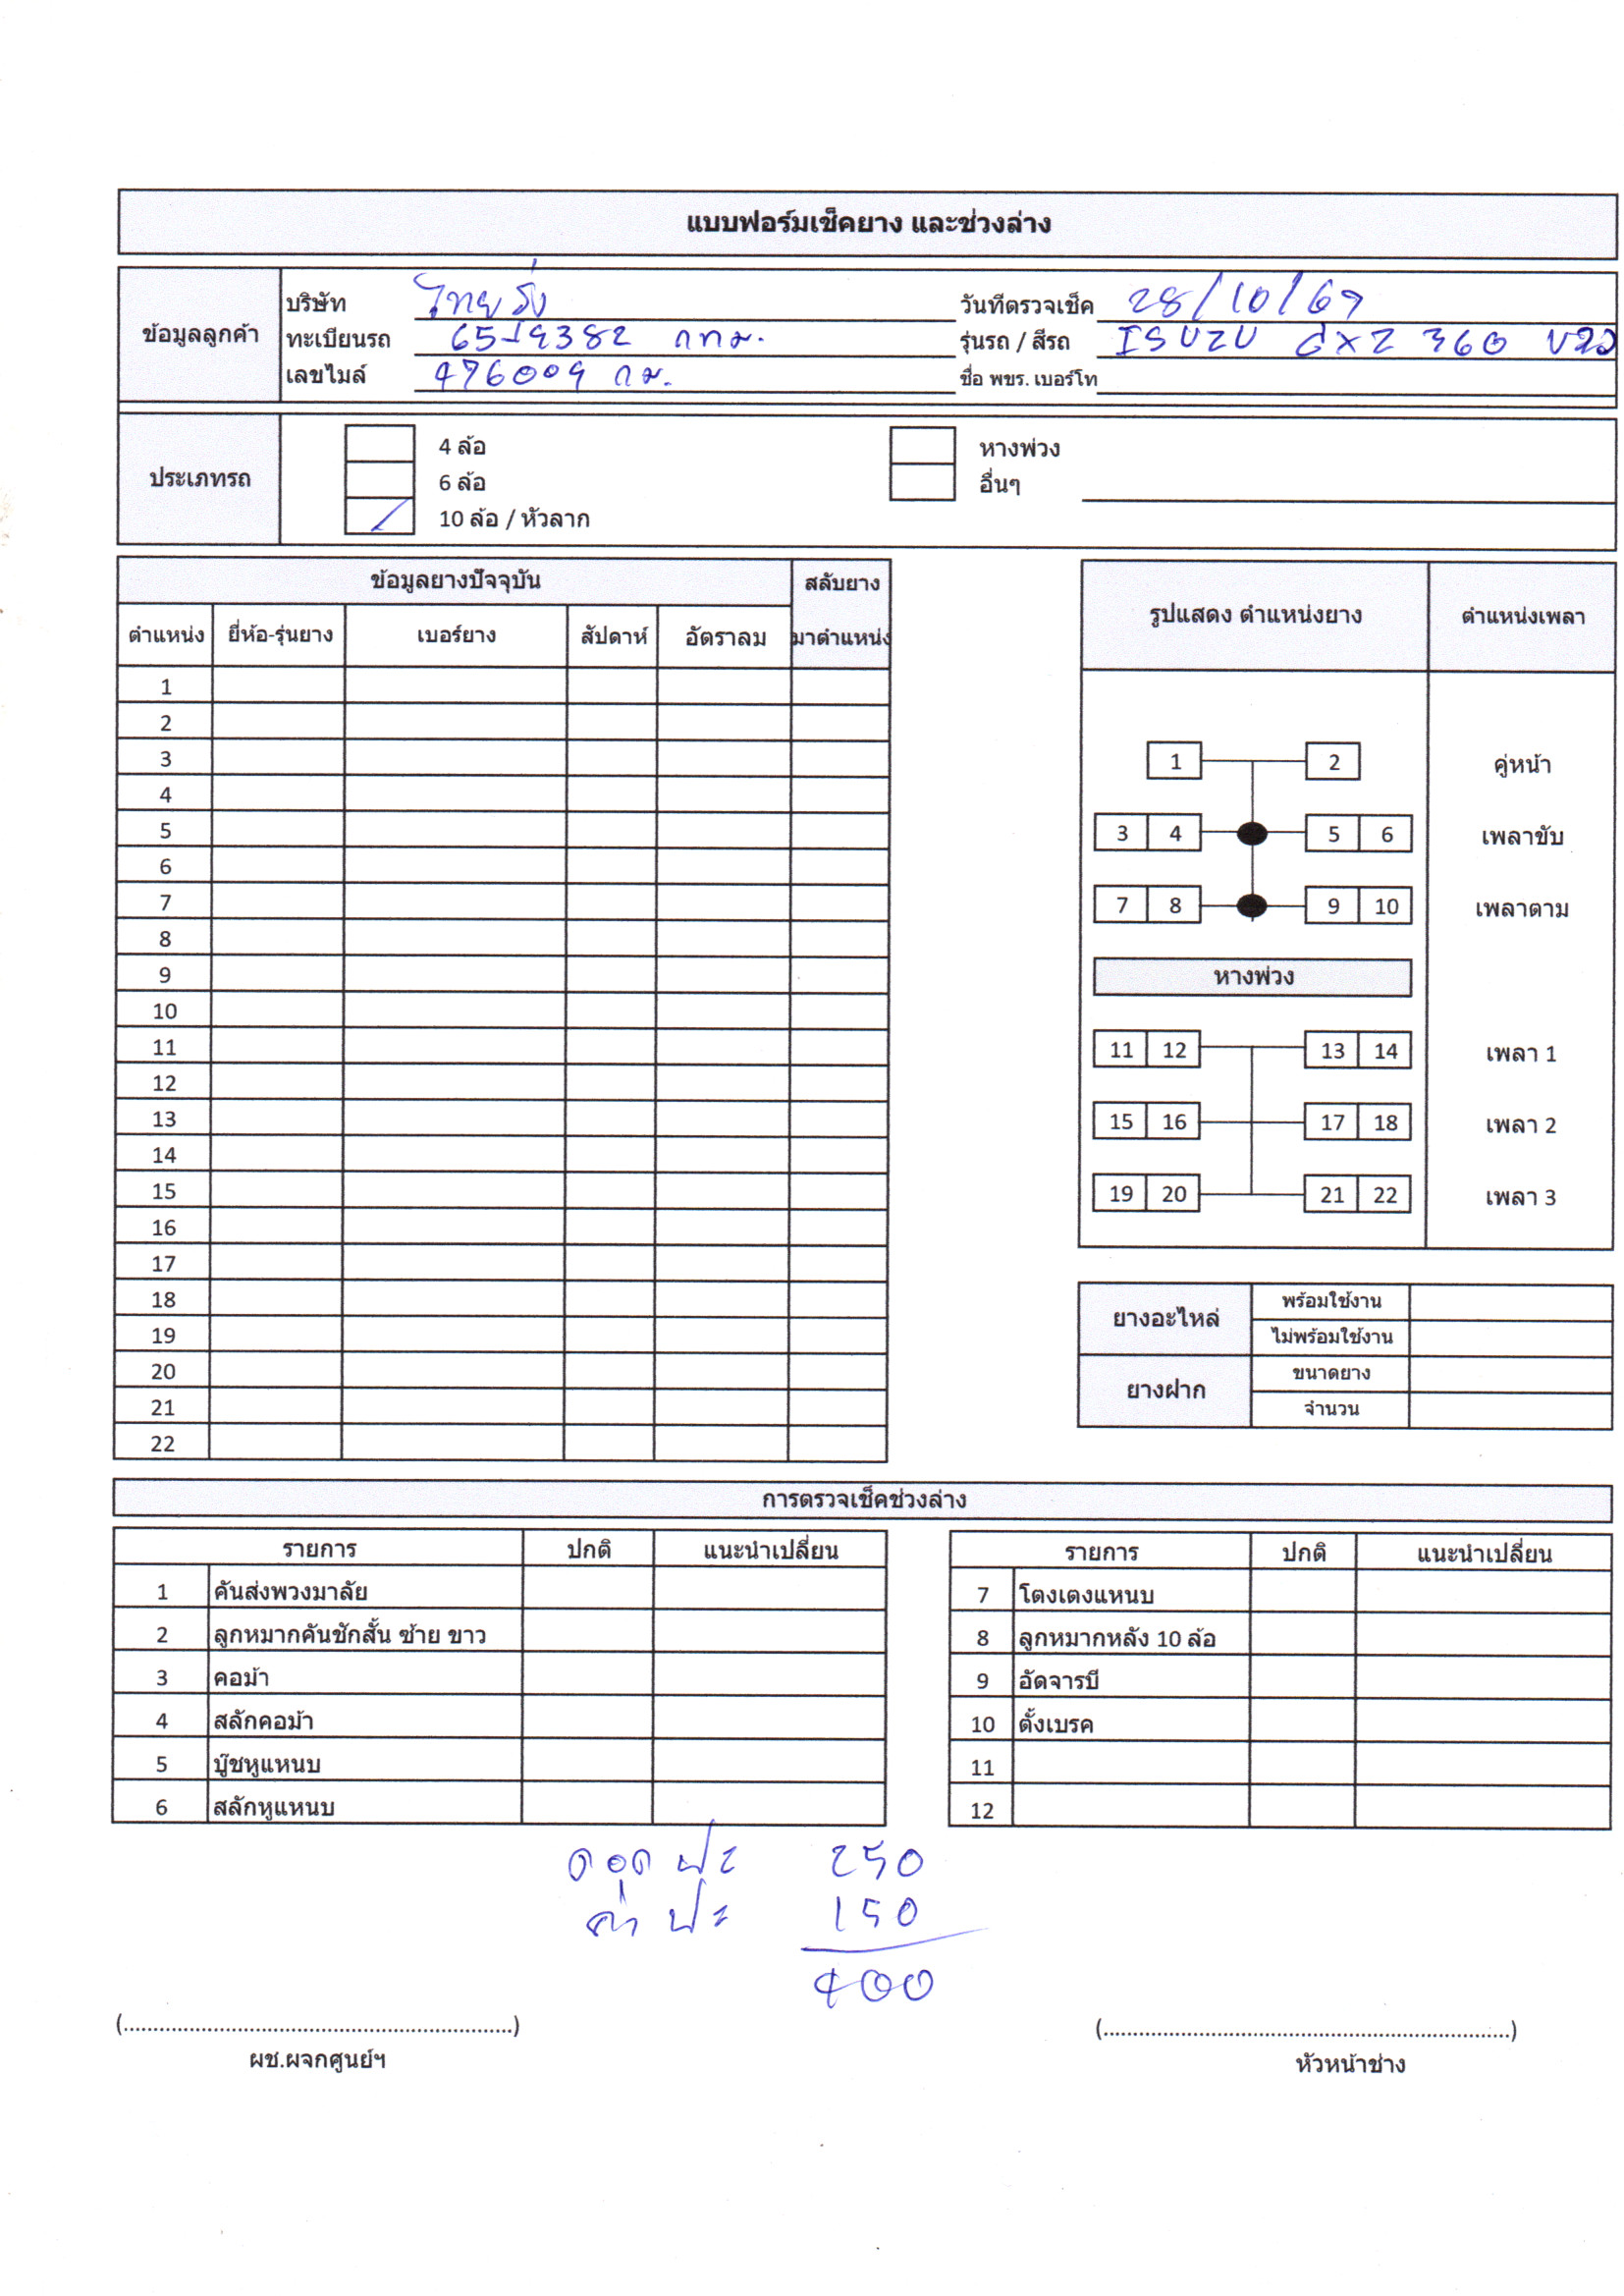 แบบฟอร์มเช็คยาง และช่วงล่าง
ข้อมูลลูกค้า
บริษัท ไทยรุ่ง วันที่ตรวจเช็ค 28/10/67
ทะเบียนรถ 65-9382 กทม. รุ่นรถ / สีรถ ISUZU GXZ 360 ขาว
เลขไมล์ 476009 กม. ชื่อ พขร. เบอร์โท
ประเภทรถ
4 ล้อ หางพ่วง
6 ล้อ อื่นๆ
/ 10 ล้อ / หัวลาก
ข้อมูลยางปัจจุบัน สลับยาง
ตำแหน่ง ยี่ห้อ-รุ่นยาง เบอร์ยาง สัปดาห์ อัตราลม มาตำแหน่ง
1
2
3
4
5
6
7
8
9
10
11
12
13
14
15
16
17
18
19
20
21
22
รูปแสดง ตำแหน่งยาง ตำแหน่งเพลา
1 2 คู่หน้า
3 4 5 6 เพลาขับ
7 8 9 10 เพลาตาม
หางพ่วง
11 12 13 14 เพลา 1
15 16 17 18 เพลา 2
19 20 21 22 เพลา 3
ยางอะไหล่ พร้อมใช้งาน
ไม่พร้อมใช้งาน
ยางฝาก ขนาดยาง
จำนวน
การตรวจเช็คช่วงล่าง
รายการ ปกติ แนะนำเปลี่ยน
1 คันส่งพวงมาลัย
2 ลูกหมากคันชักสั้น ซ้าย ขาว
3 คอม้า
4 สลักคอม้า
5 บู๊ชหูแหนบ
6 สลักหูแหนบ
รายการ ปกติ แนะนำเปลี่ยน
7 โตงเตงแหนบ
8 ลูกหมากหลัง 10 ล้อ
9 อัดจารบี
10 ตั้งเบรค
11
12
ถอด ปะ 250
ค่า ปะ 150
400
(..........) (..........)
ผช.ผจกศูนย์ฯ หัวหน้าช่าง